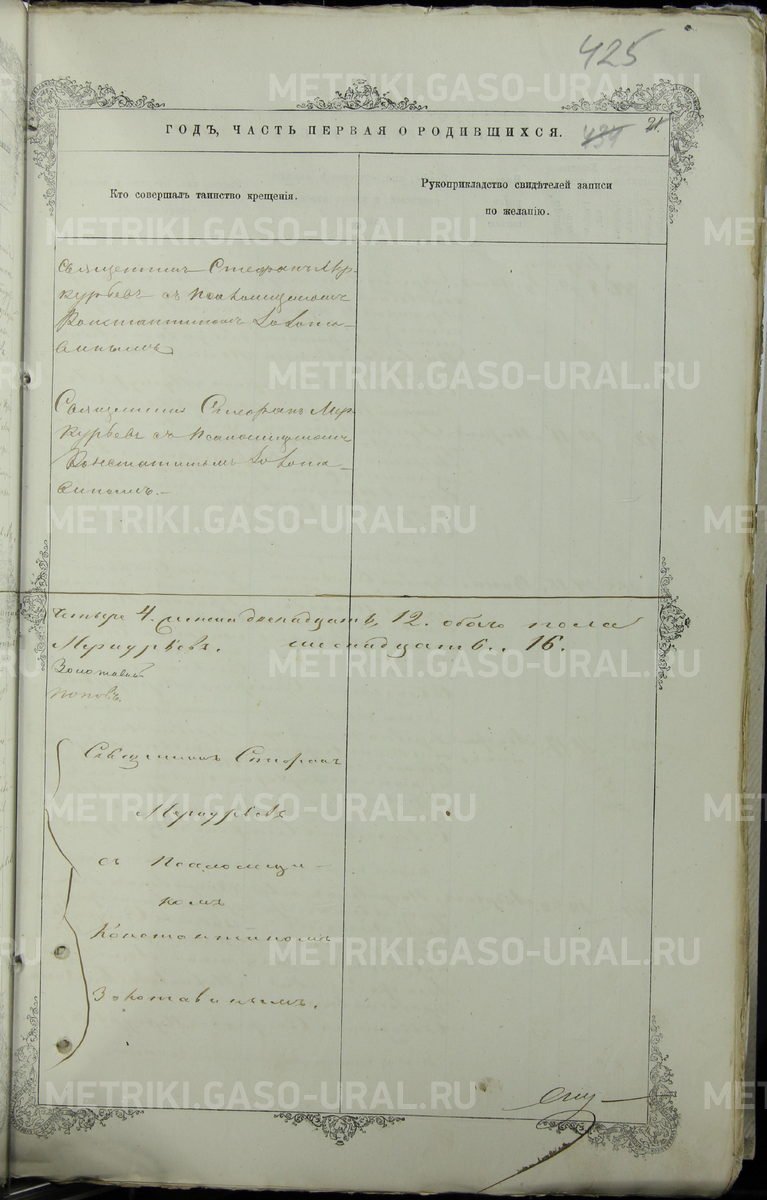 425
ГОДЪ, ЧАСТЬ ПЕРВАЯ О РОДИВШИХСЯ.
21.
Кто совершалъ таинство крещенія.
Рукоприкладство свидѣтелей записи
по желанію.
Священникъ Стефанъ Мер-
курьевъ съ Псаломщикомъ
Константиномъ Золота-
винымъ
Священникъ Стефанъ Мер-
курьевъ съ Псаломщикомъ
Константиномъ Золота-
винымъ.
четыре 4. женска двенадцать, 12. обоего пола
Меркурьевъ. шеснадцать.. 16.
Золотавинъ
Поповъ.
Священникъ Стефанъ
Меркурьевъ
съ Псаломщи-
комъ
Константиномъ
Золотавинымъ.
METRIKI.GASO-URAL.RU